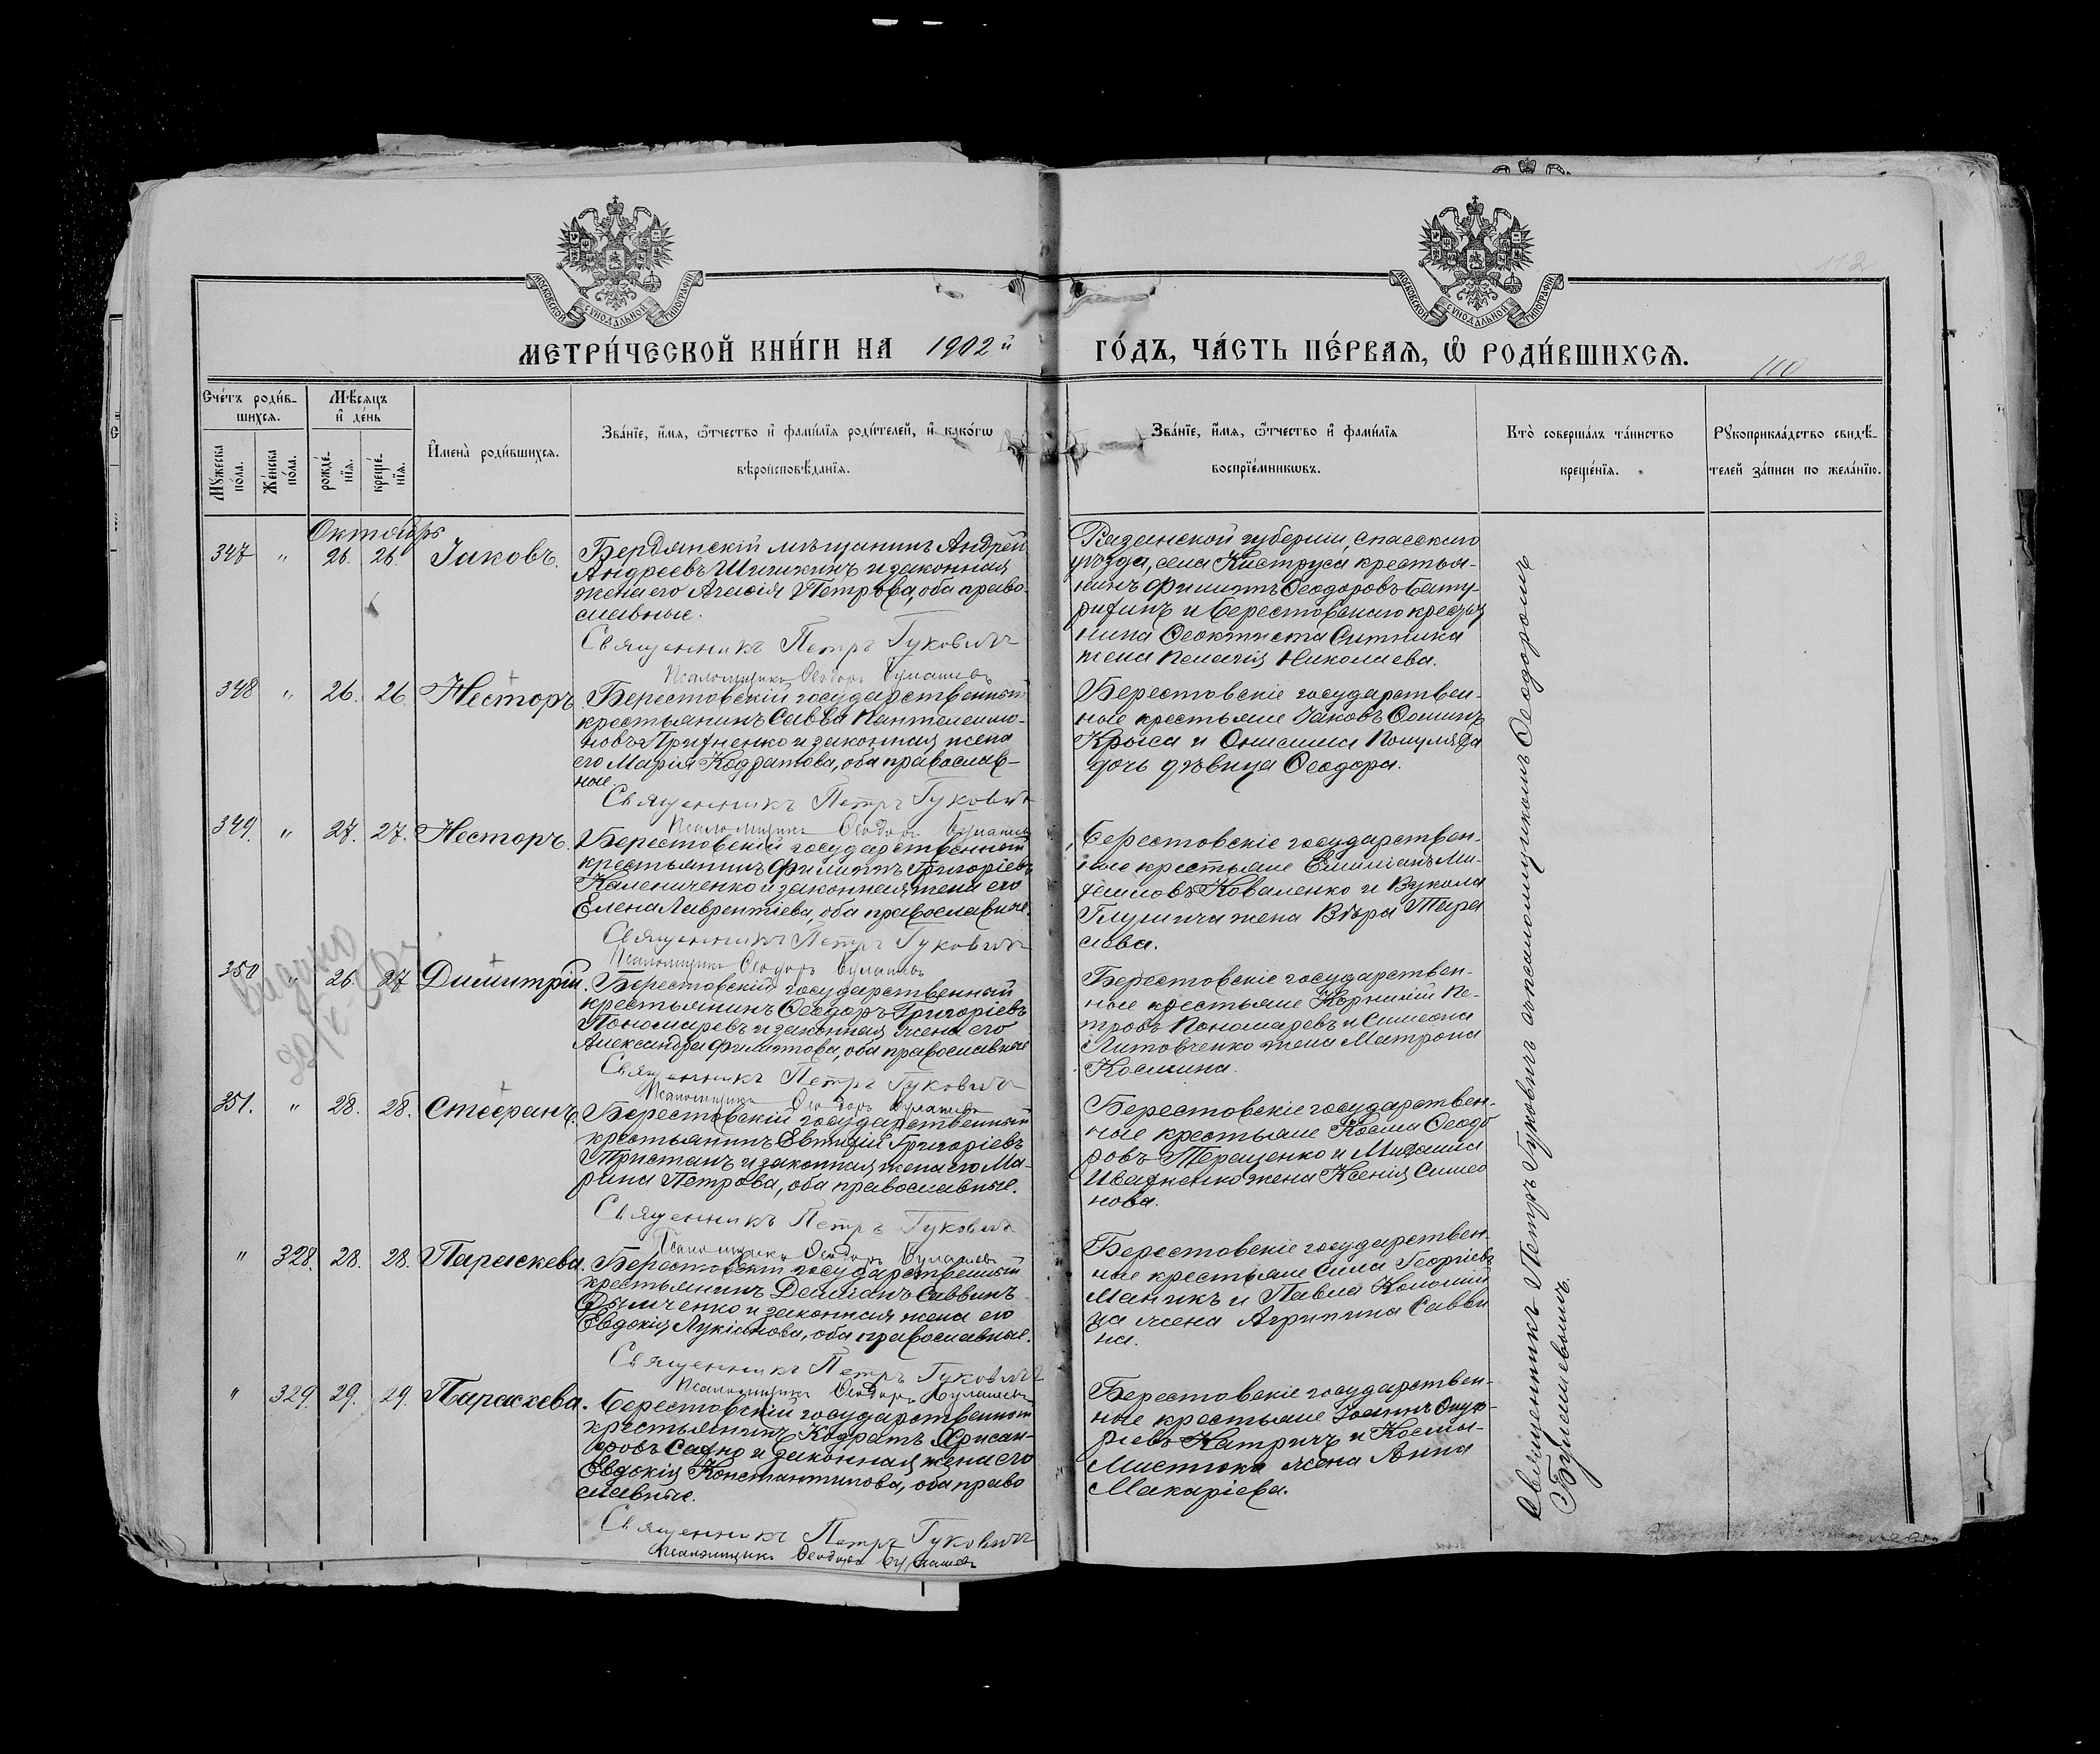 МОСКОВСКОЙ СѴНОДАЛЬНОЙ ТИПОГРАФІИ
МОСКОВСКОЙ СѴНОДАЛЬНОЙ ТИПОГРАФІИ
МЕТРИ́ЧЕСКОЙ КНИ́ГИ НА 1902й
ГО́ДЪ, ЧА́СТЬ ПЕ́РВАѦ, Ѡ҆ РОДИ́ВШИХСѦ.
110
Сче́тъ роди́в-
шихсѧ.
Мꙋ́жеска
по́ла.
Же́нска
по́ла.
Мѣ́сѧцъ
и҆ де́нь
рожде́-
нїѧ.
креще́-
нїѧ.
И҆мена̀ роди́вшихсѧ.
Зва́нїе, и҆́мѧ, ѻ҆́тчество и҆ фами́лїѧ роди́телей, и҆ како́гѡ
вѣроисповѣ́данїѧ.
Зва́нїе, и҆́мѧ, ѻ҆́тчество и҆ фами́лїѧ
воспрїе́мникѡвъ.
Кто̀ соверша́лъ та́инство
креще́нїѧ.
Рꙋкоприкла́дство свидѣ́-
телей за́писи по жела́нїю.
Октябрь
347 " 26. 26. Іаковъ.
Бердянскій мѣщанинъ Андрей
Андреевъ Шишкинъ и законная
жена его Агафія Петрова, оба право-
славные.
Священникъ Петръ Гуковичъ
Псаломщикъ Ѳеодоръ
Рязанской губерніи, Спасскаго
уѣзда, села Киструса крестья-
нинъ Филиппъ Ѳеодоровъ Бату-
и Берестовскаго крестья
нина Ѳеоктиста Ситника
жена Пелагія Николаева.
348 " 26. 26. Несторъ.
Берестовскій государственный
крестьянинъ Савва Пантелеимо-
новъ Прихненко и законная жена
его Марія Кодратова, оба православ-
ные.
Священникъ Петръ Гуковичъ
Псаломщикъ Ѳеодоръ
Берестовскіе государствен-
ные крестьяне Іаковъ Ѳоминъ
Крыса и Онисима
дочь дѣвица Ѳеодора.
349. " 27. 27. Несторъ.
Берестовскій государственный
крестьянинъ Филиппъ Григоріевъ
Калениченко и законная жена его
Елена Лаврентіева, оба православные.
Священникъ Петръ Гуковичъ
Псаломщикъ Ѳеодоръ
Берестовскіе государствен-
ные крестьяне Емиліанъ Ми-
хаиловъ Коваленко и Вукола
жена Вѣра Тара
сіева.
350 " 26. 27 Димитрій.
Берестовскій государственный
крестьянинъ Ѳеодоръ Григоріевъ
Пономаревъ и законная жена его
Александра Филиппова, оба православные
Священникъ Петръ Гуковичъ
Псаломщикъ Ѳеодоръ
Берестовскіе государствен-
ные крестьяне Корнилій Пе-
тровъ Пономаревъ и Симеона
Литовченко жена Матрона
Космина.
351. " 28. 28. Стефанъ.
Берестовскій государственный
крестьянинъ Евтихій Григоріевъ
Тристанъ и законная жена его Ма-
рина Петрова, оба православные.
Священникъ Петръ Гуковичъ
Псаломщикъ Ѳеодоръ
Берестовскіе государствен-
ные крестьяне Косма Ѳеодо
ровъ Терещенко и Михаила
Ивахненко жена Ксенія Симео
нова.
" 328. 28. 28. Параскева.
Берестовскій государственный
крестьянинъ Даміанъ Саввинъ
и законная жена его
Евдокія Лукіанова, оба православные.
Священникъ Петръ Гуковичъ
Псаломщикъ Ѳеодоръ
Берестовскіе государствен-
ные крестьяне Сила Георгіевъ
Маникъ и Павла Коломій
ца жена Агрипина Савви
на.
" 329. 29. 29. Параскева.
Берестовскій государственный
крестьянинъ Кодратъ Хрисан-
ѳовъ Сахно и законная жена его
Евдокія Константинова, оба право
славные.
Священникъ Петръ Гуковичъ
Псаломщикъ Ѳеодоръ
Берестовскіе государствен-
ные крестьяне Іоаннъ Онуф-
ріевъ и Космы
жена Анна
Макаріева.
Священникъ Петръ Гуковичъ съ псаломщикомъ Ѳеодоромъ